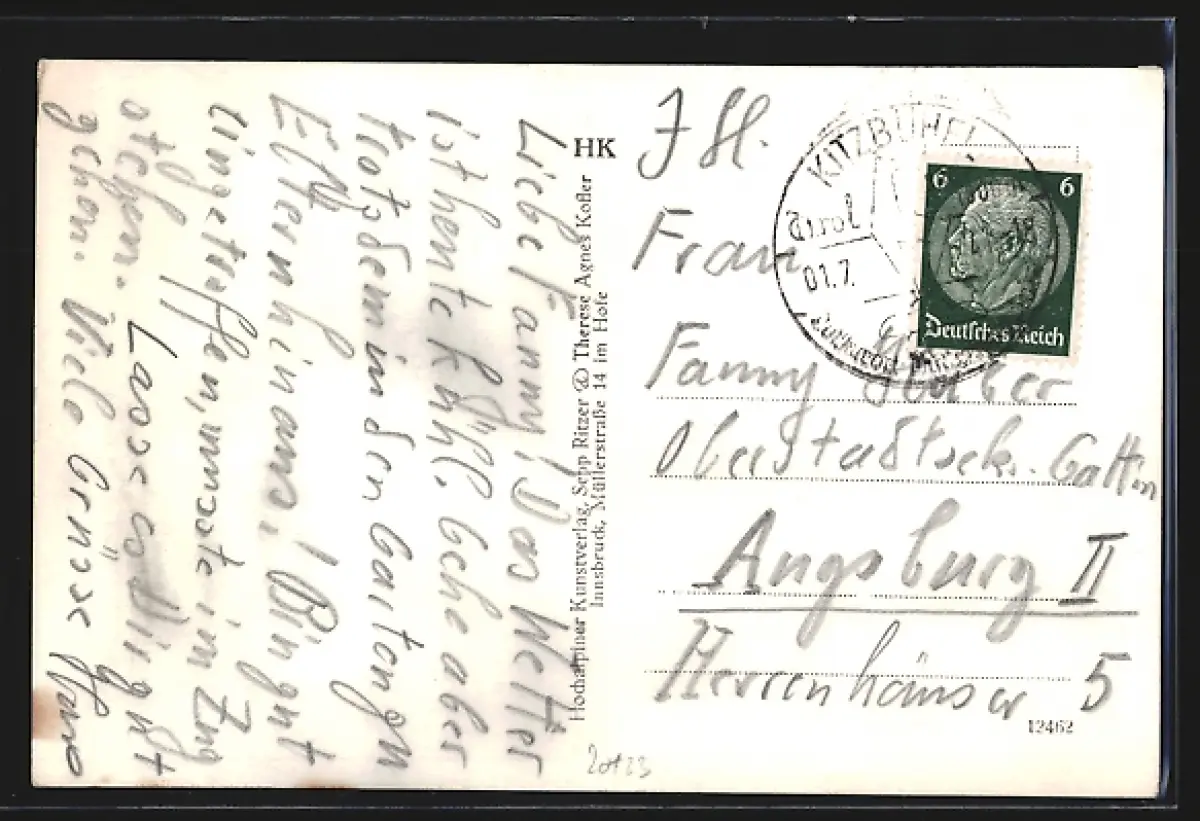 Liebe Fanny! Das Wetter
ist heute kühl, gehe aber
trotzdem in den Garten zu
Elternhinaus! Bin gut
eingetroffen, musste im Zug
stehen. Lasse es dir gut
gehen. Viele Grüsse Hans
HK
Hochalpiner Kunstverlag, Sepp Ritzer © Therese Agnes Kofler
Innsbruck, Müllerstraße 14 im Hofe
KITZBÜHEL
Tirol
01.7.
6 6
Deutsches Reich
I. H.
Frau
Fanny Huber
Oberstadtsek. Gattin
Augsburg II
Herrenhäuser 5
12462